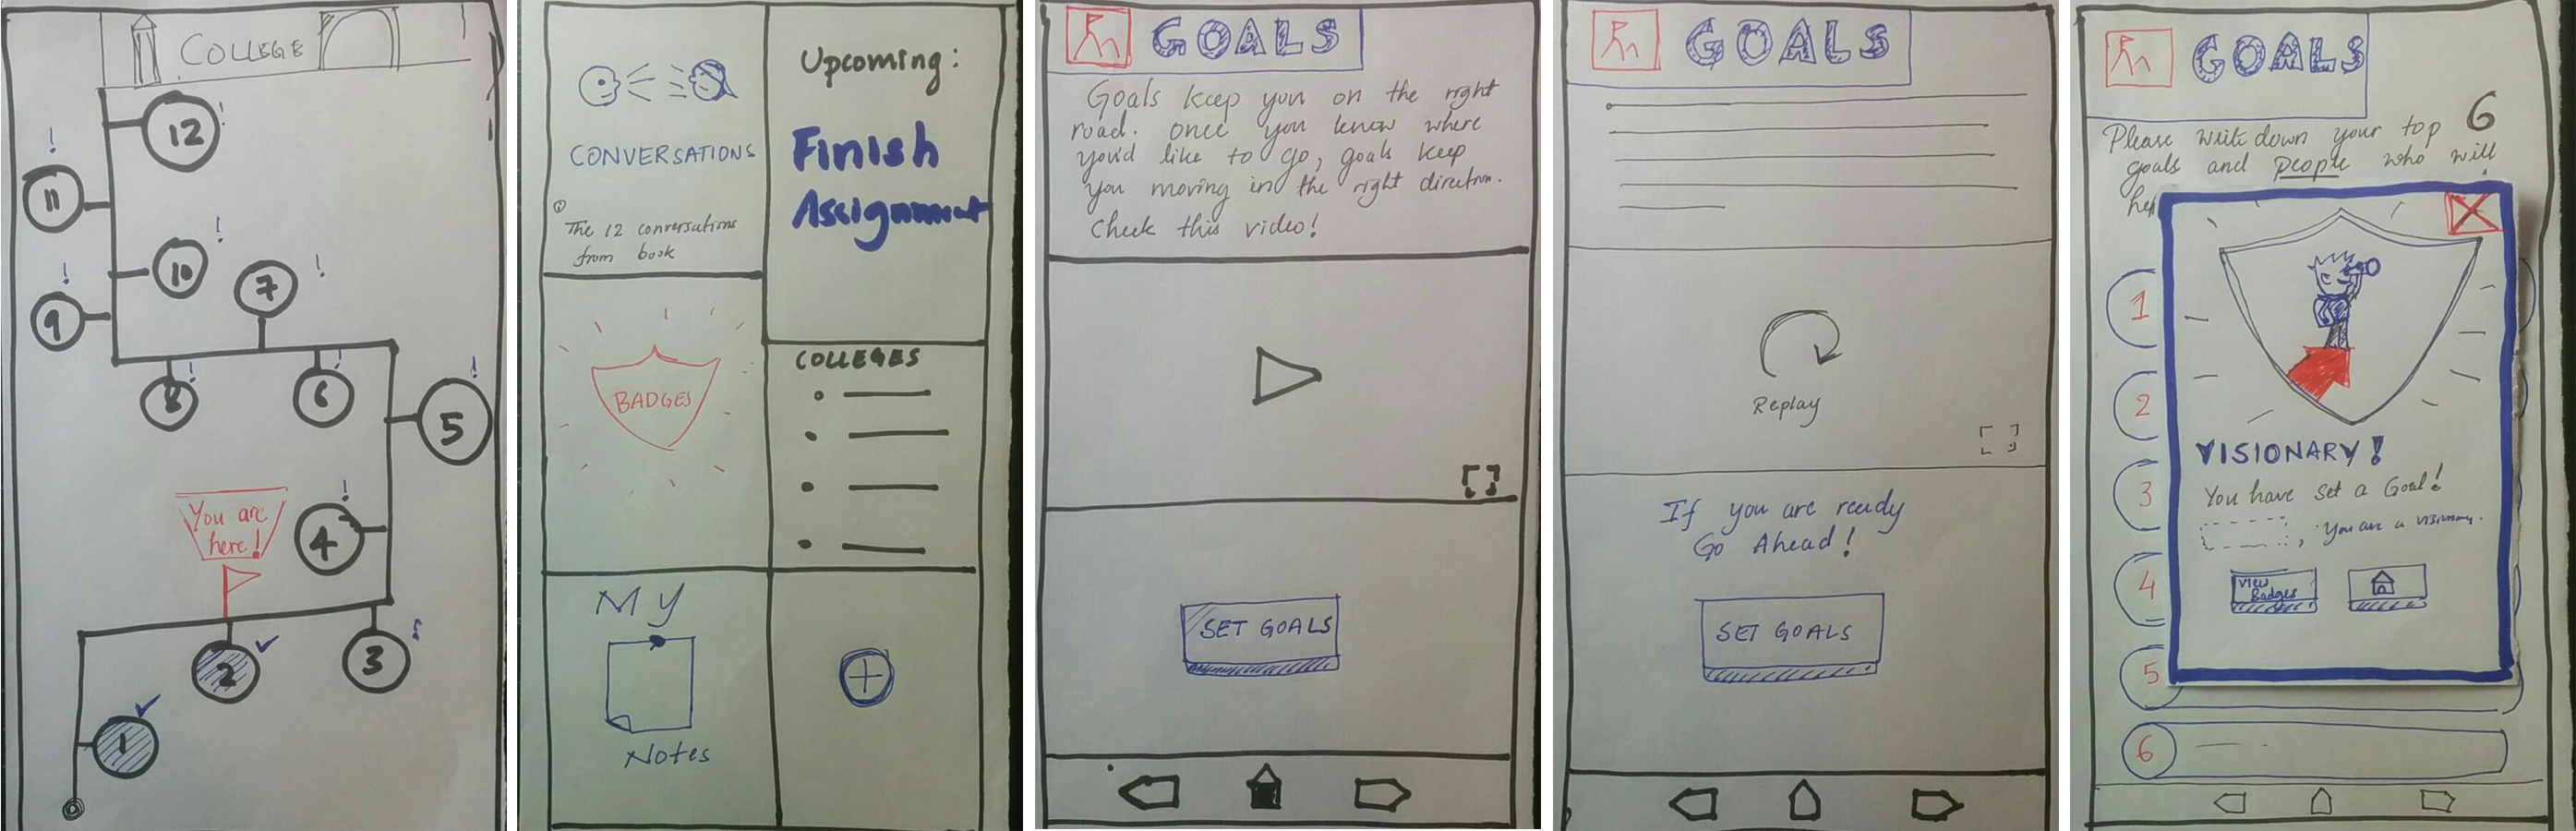 COLLEGE
12
11
10
9
7
8
6
5
You are
here!
4
2
3
1
CONVERSATIONS
The 12 conversations
from book
Upcoming:
Finish
Assignment
BADGES
COLLEGES
My
Notes
GOALS
Goals keep you on the right
road. once you know where
you'd like to go, goals keep
you moving in the right direction.
Check this video!
SET GOALS
GOALS
Replay
If you are ready
Go Ahead!
SET GOALS
GOALS
Please write down your top 6
goals and people who will
hel
1
2
3
4
5
6
VISIONARY!
You have set a Goal!
, You are a visionary.
View
Badges